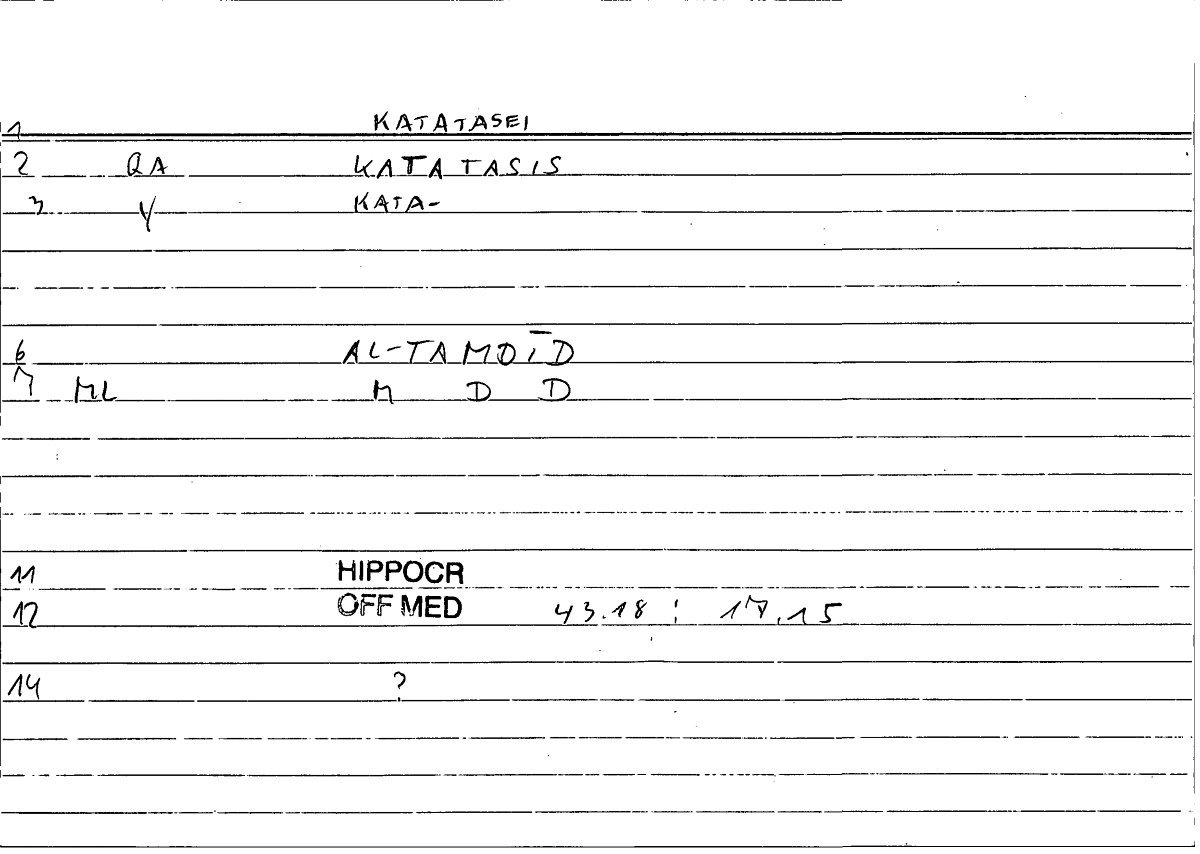 1 KATATASEI
2 QA KATATASIS
3 Y KATA-
6 AL-TAMOĪD
7 ML M D D
11 HIPPOCR
12 OFF MED 43.18 : 17.15
14 ?